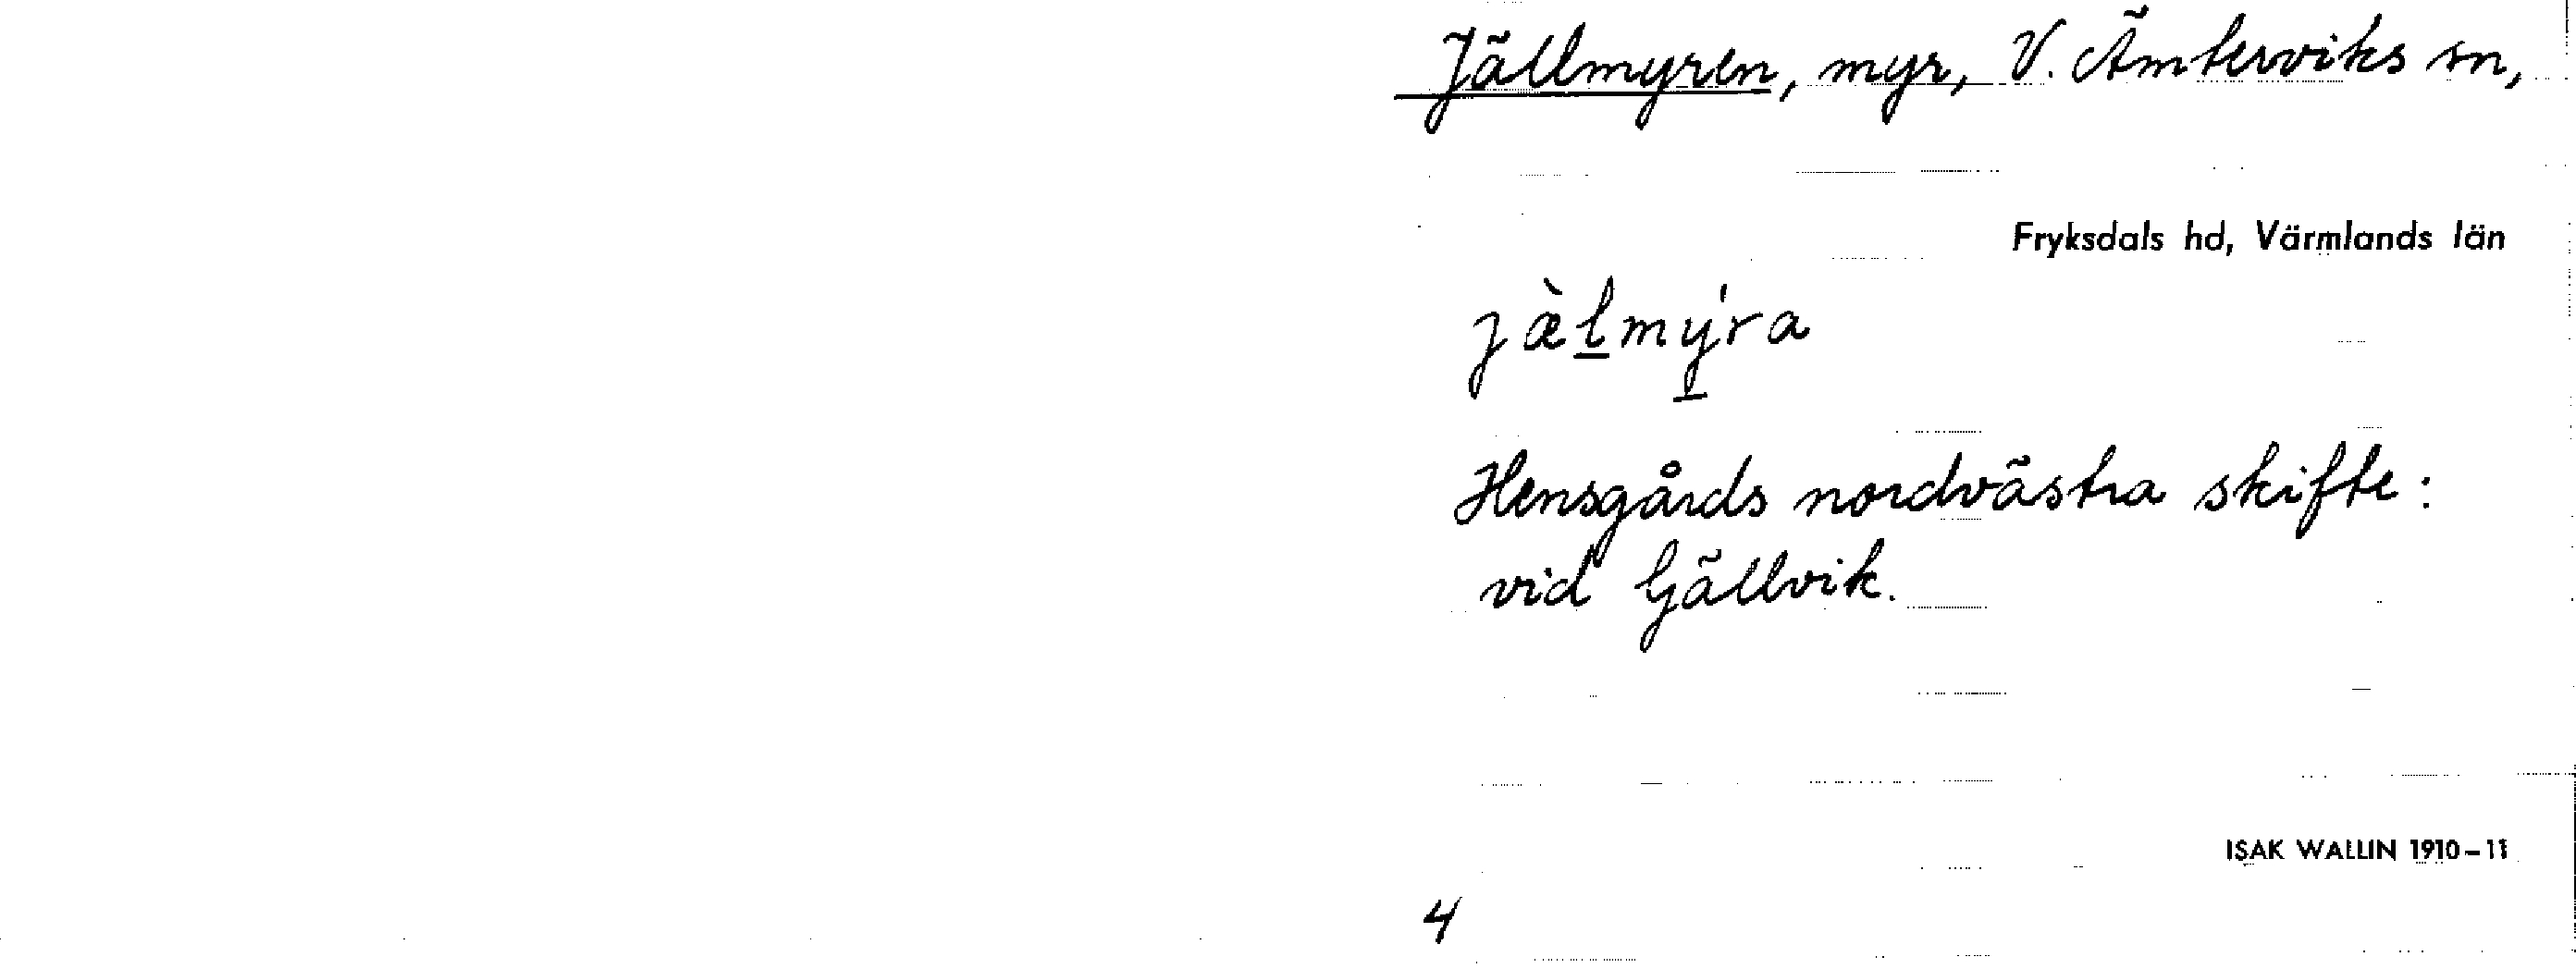 Jällmyren, myr, V. Ämterviks sn,
Fryksdals hd, Värmlands län
jæ̀l̲mý̲ra
Hensgårds nordvästra skifte:
vid Gällvik.
ISAK WALLIN 1910–11
4